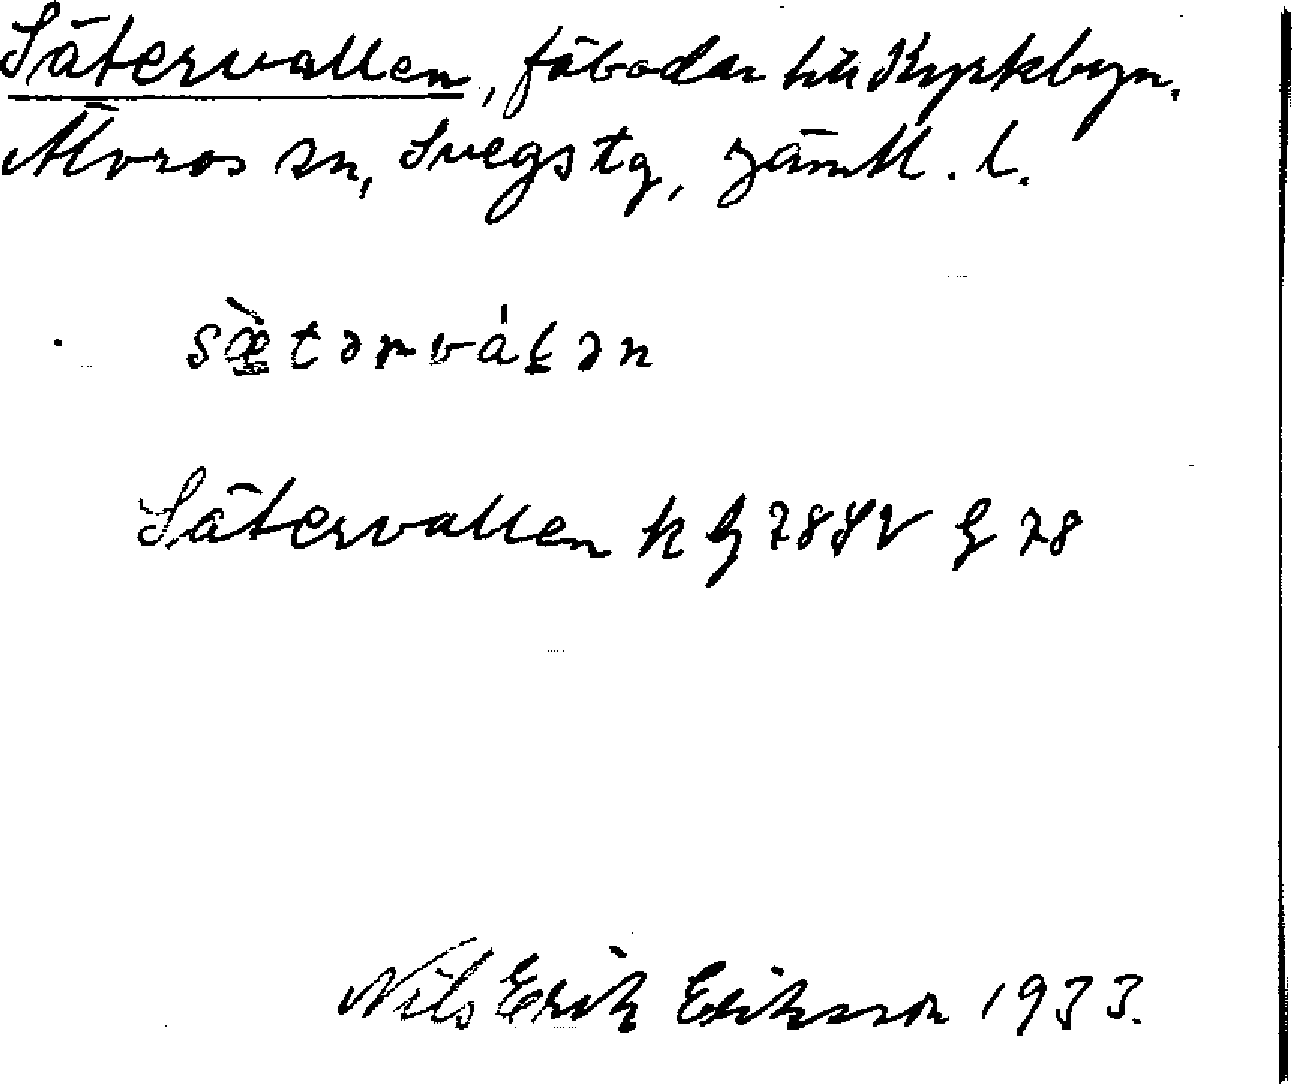 Sätervallen, fäbodar till Kyrkbyn.
Älvros sn, Svegs tg, Jämtl. l.
sæ̀tərváłən
Sätervallen k G 78 SV G 78
Nils Erik Eriksson 1933.